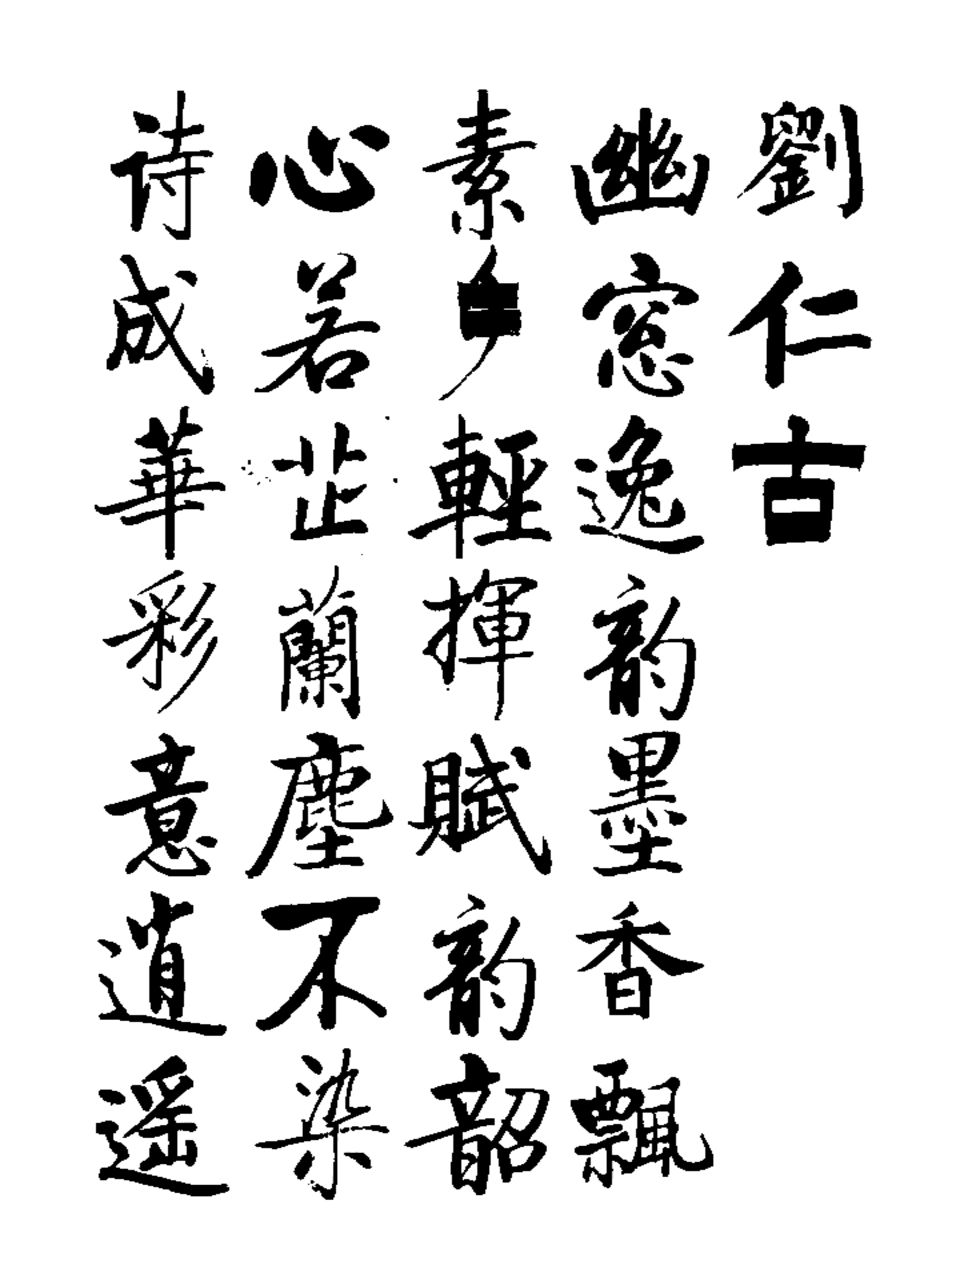 劉仁古
幽窓逸韵墨香飄
素手輕揮賦韵韶
心若芷蘭塵不染
诗成華彩意逍遥